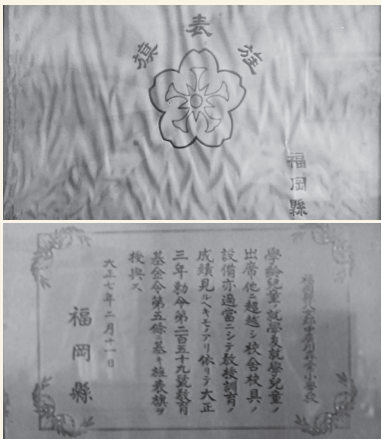 旌表旗
福岡縣
福岡縣八女郡中廣川尋常小學校
學齡兒童ノ就學及就學兒童ノ
出席他ニ超越シ校舍校具ノ
設備亦適當ニシテ教授訓育ノ
成績見ルヘキモノアリ依リテ大正
三年勅令第二百五十九號教育
基金令第五條ニ基キ旌表旗ヲ
授與ス
大正七年二月十一日
福岡縣